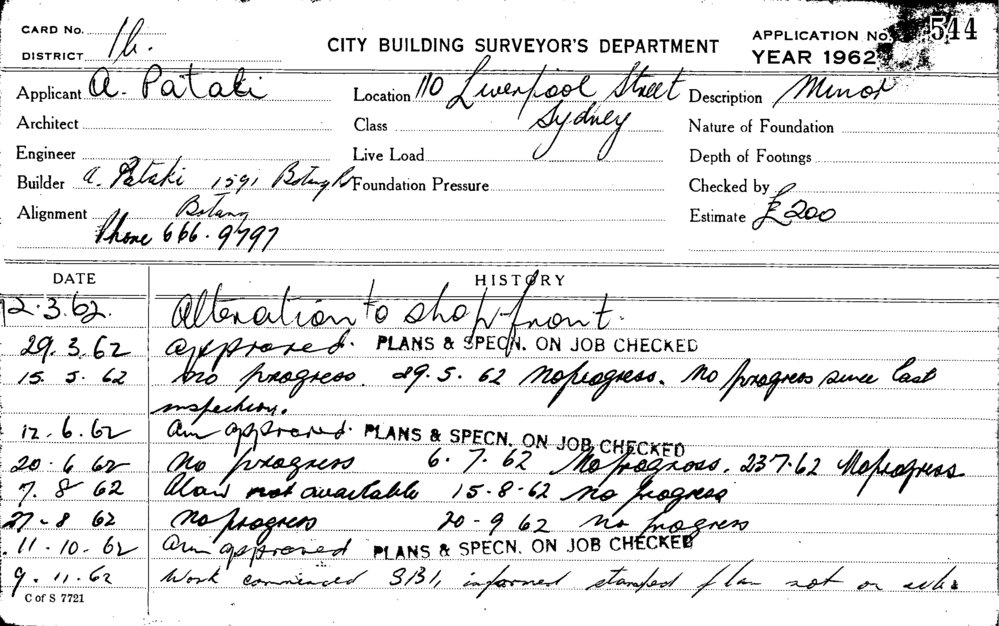 CARD No.
DISTRICT 16.
CITY BUILDING SURVEYOR'S DEPARTMENT
APPLICATION No. 544
YEAR 1962
Applicant A. Pataki
Location 110 Liverpool Street
Sydney
Description Minor
Architect
Class
Nature of Foundation
Engineer
Live Load
Depth of Footings
Builder A. Pataki 1591 Botany Rd
Botany
Foundation Pressure
Checked by
Alignment
Estimate £200
Phone 666.9797
DATE HISTORY
12.3.62. Alteration to shop-front.
29.3.62 approved. PLANS & SPECN. ON JOB CHECKED
15.5.62 No progress. 29.5.62 No progress. No progress since last
inspection.
12.6.62 Am approved. PLANS & SPECN. ON JOB CHECKED
20.6 62 No progress 6.7.62 No progress. 23.7.62 No progress.
7.8 62 Plan not available 15-8-62 No progress
27-8 62 No progress 20-9 62 No progress
11-10-62 Am approved PLANS & SPECN. ON JOB CHECKED
9.11.62 Work commenced informed stamped plan not on
C of S 7721